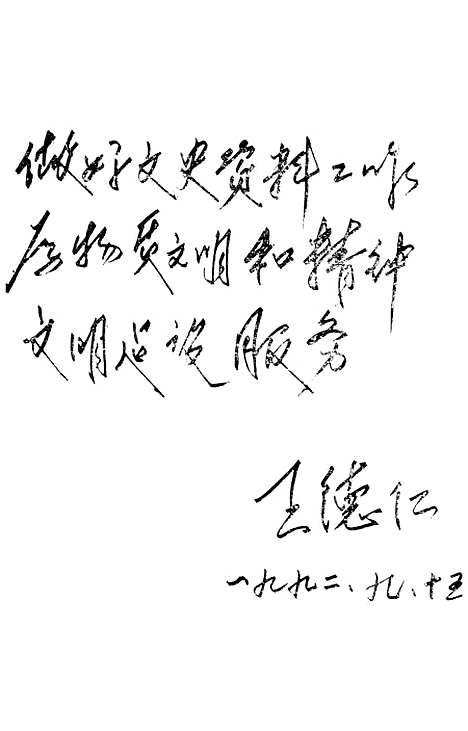 做好文史资料工作
为物质文明和精神
文明建设服务
王德仁
一九九二、九、十五